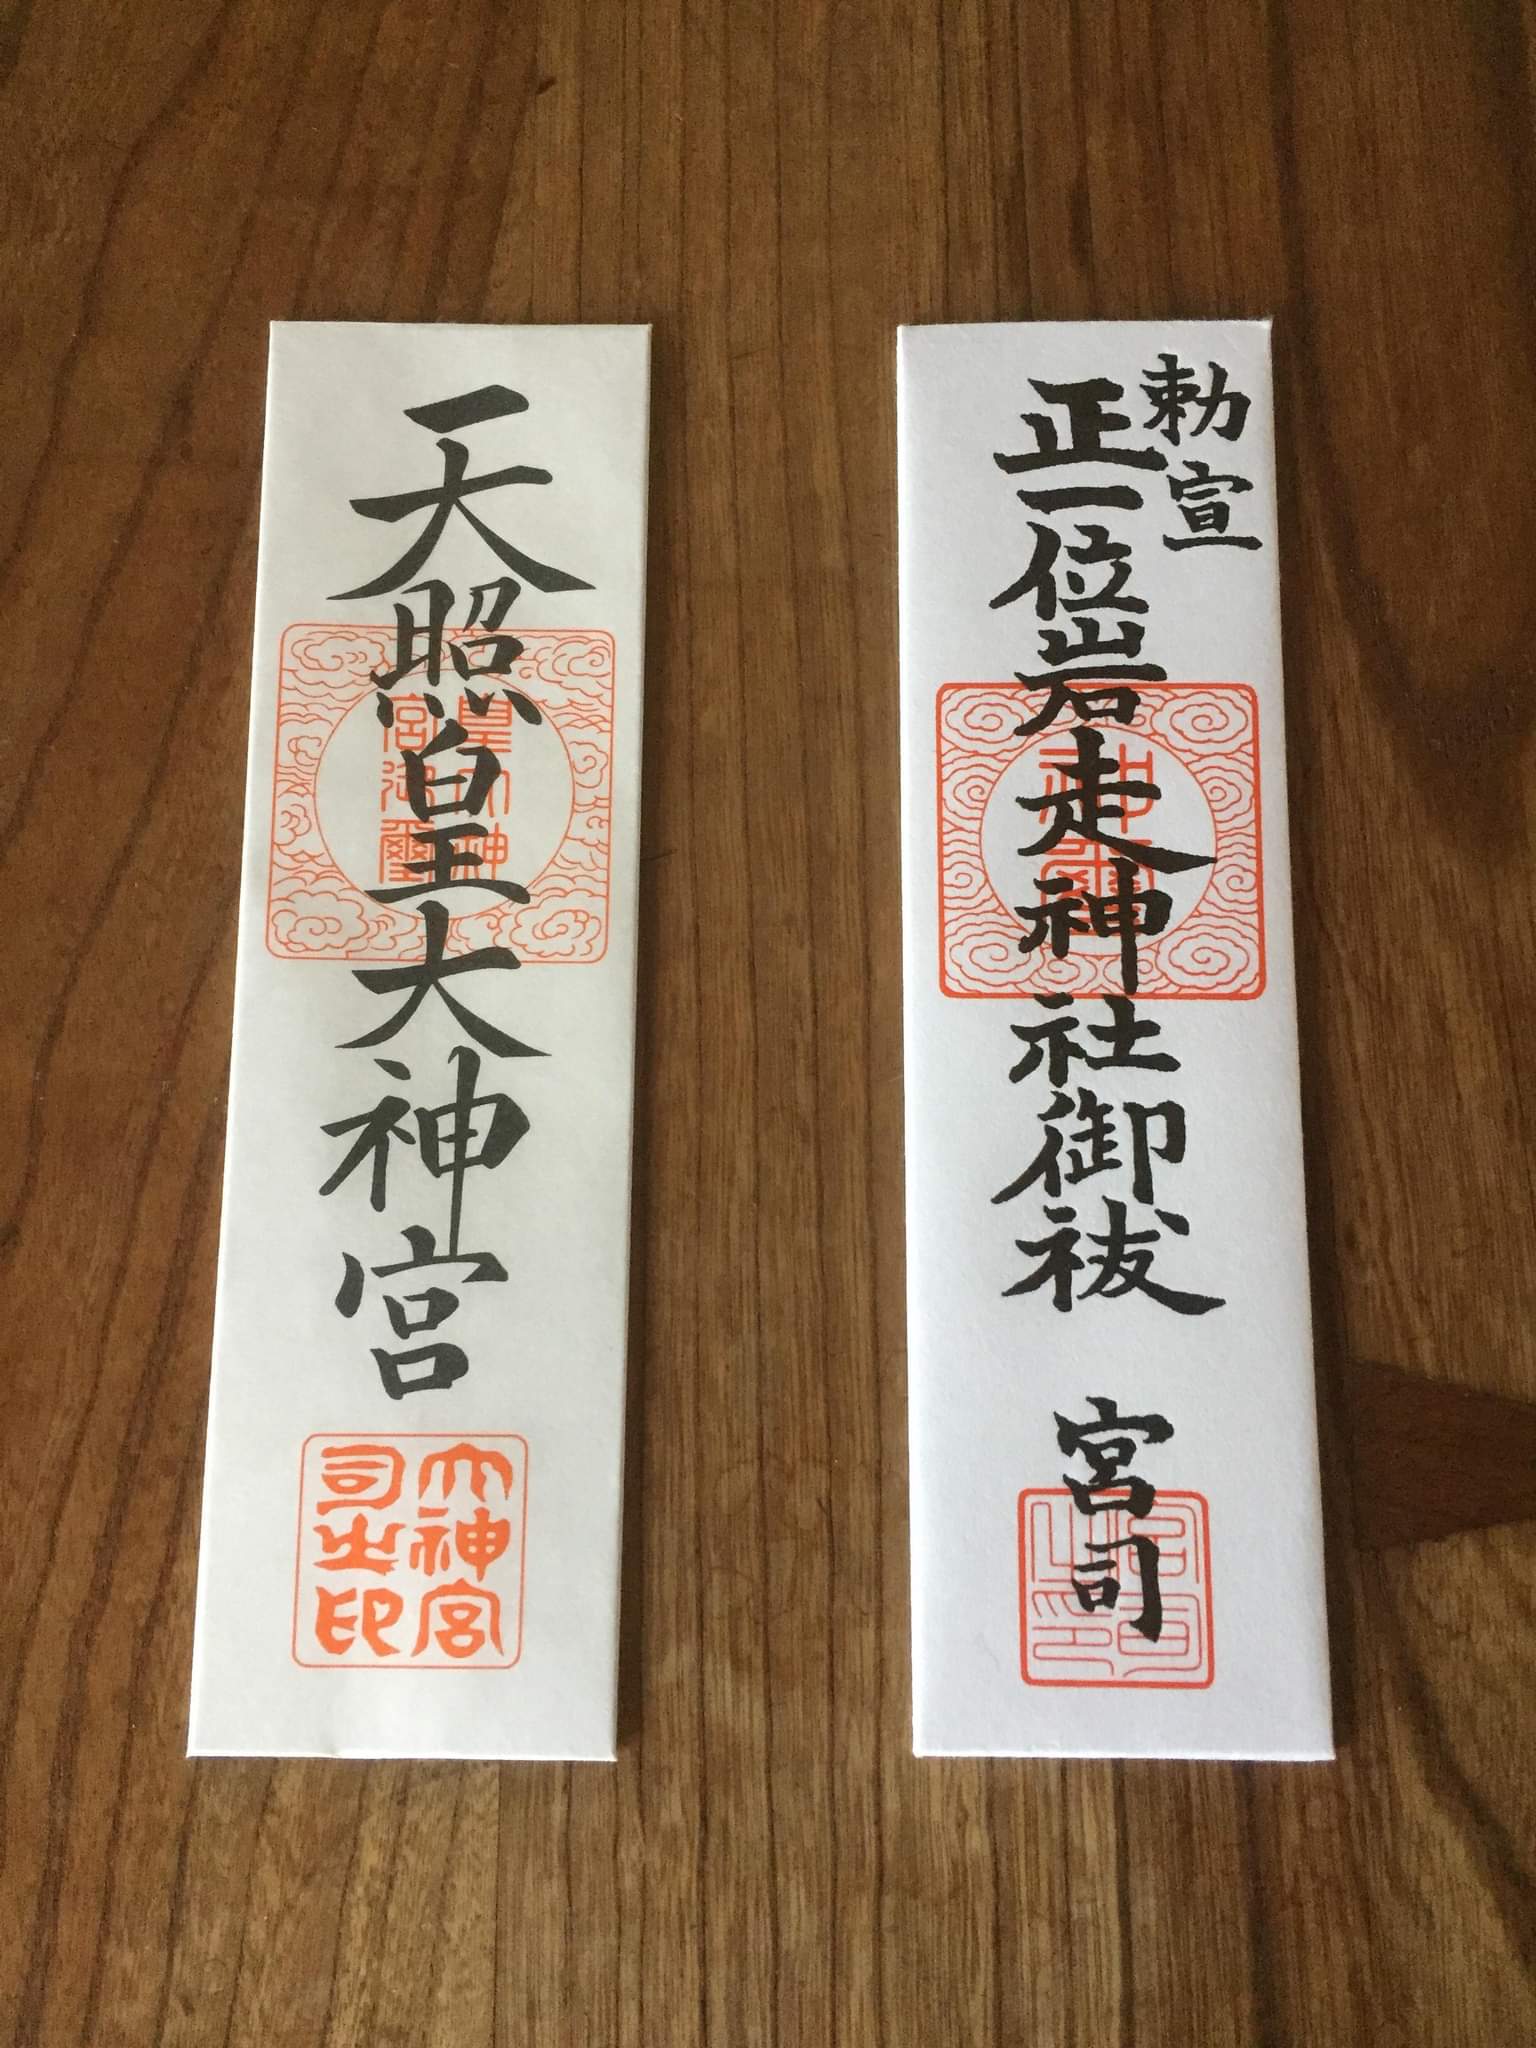 天照皇大神宮
皇大神
宮御璽
大神宮
司之印
勅宣
正一位岩走神社御祓
宮司
神璽